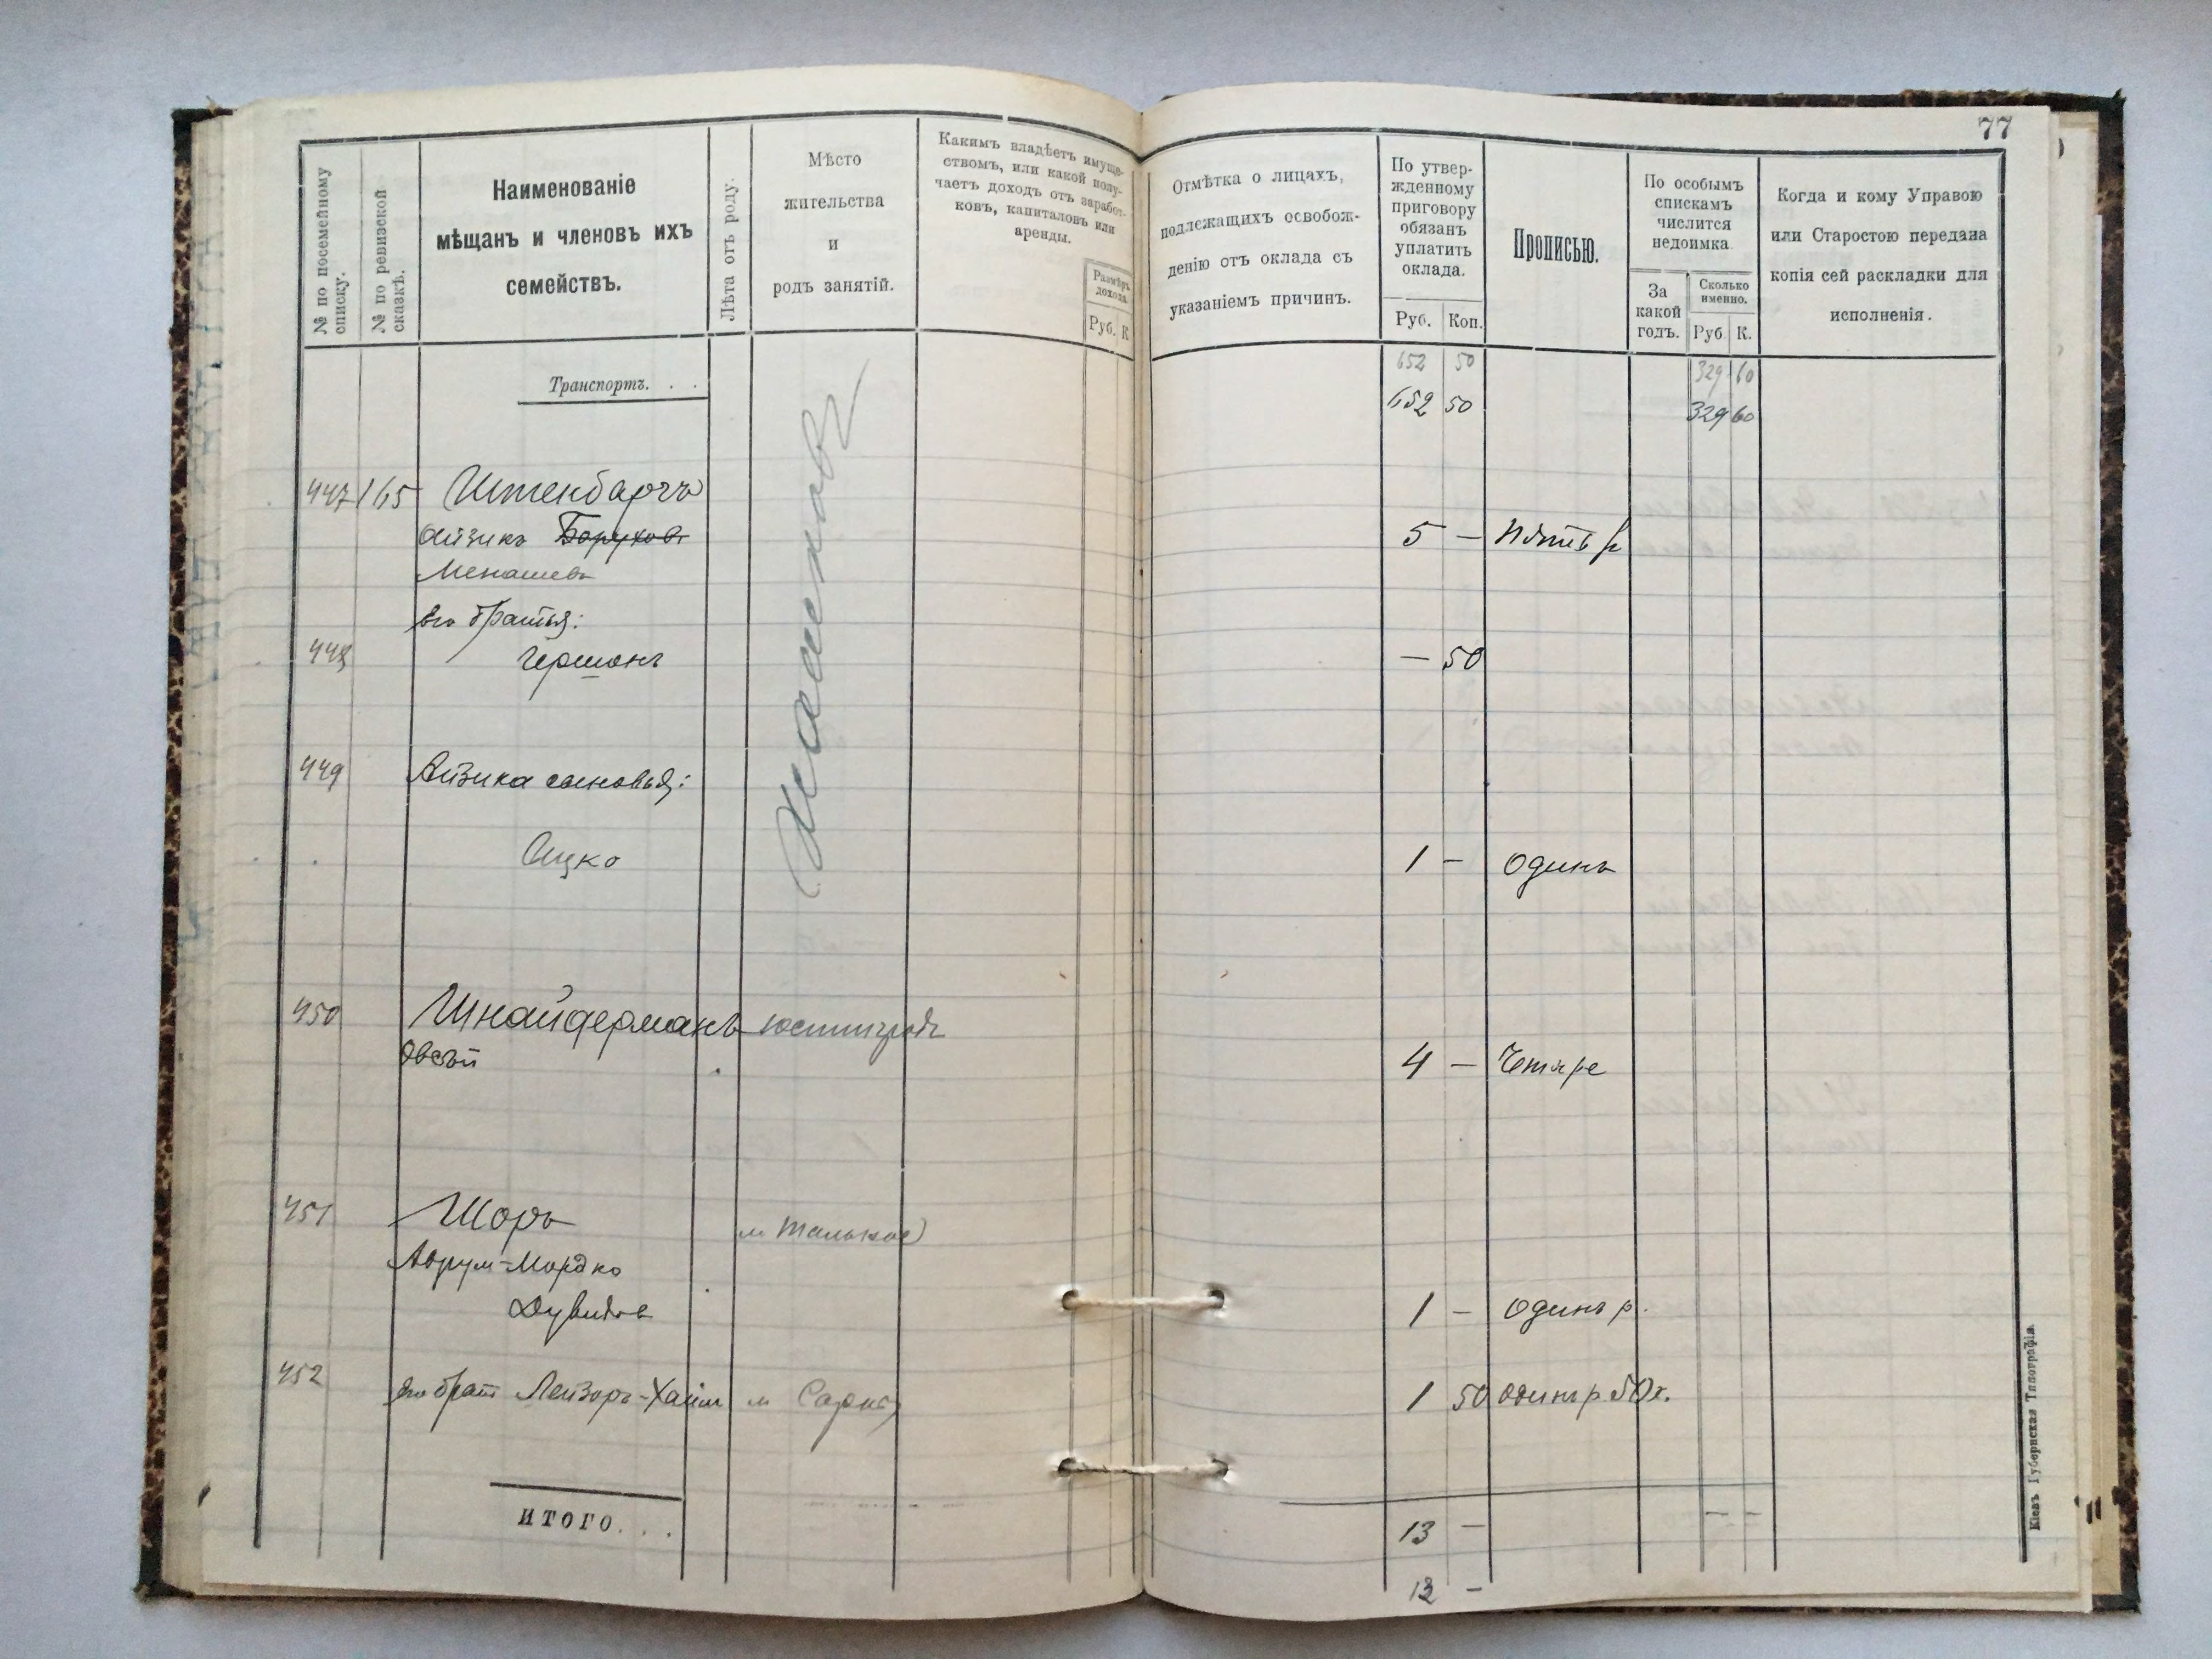 77
№ по посемейному списку.
№ по ревизской сказкѣ.
Наименованіе
мѣщанъ и членовъ ихъ
семействъ.
Лѣта отъ роду.
Мѣсто
жительства
и
родъ занятій.
Какимъ владѣетъ имуще-
ствомъ, или какой полу-
чаетъ доходъ отъ заработ-
ковъ, капиталовъ или
аренды.
Размѣръ
дохода.
Руб. К
Отмѣтка о лицахъ,
подлежащихъ освобож-
денію отъ оклада съ
указаніемъ причинъ.
По утвер-
жденному
приговору
обязанъ
уплатить
оклада.
Руб. Коп.
Прописью.
По особымъ
спискамъ
числится
недоимка.
За
какой
годъ.
Сколько
именно.
Руб. К.
Когда и кому Управою
или Старостою передана
копія сей раскладки для
исполненія.
652 50 329 60
Транспортъ. . .
652 50 329 60
447 165 Штенбаргъ
Айзикъ Боруховъ 5 — Пять р
Менашевъ
его братья:
448 Гершонъ — 50
449 Айзика сыновья:
Ицко 1 — Одинъ
450 Шнайдерманъ Юстинградъ
Овсѣй 4 — Четыре
451 Шоръ м Тальное
Аврум-Мордко
Дувидов 1 — Одинъ р.
452 его брат Лейзоръ-Хаим м Сарны 1 50 Одинъ р. 50 к.
ИТОГО. . . 13 —
13 —
Кіевъ Губернская Типографія.